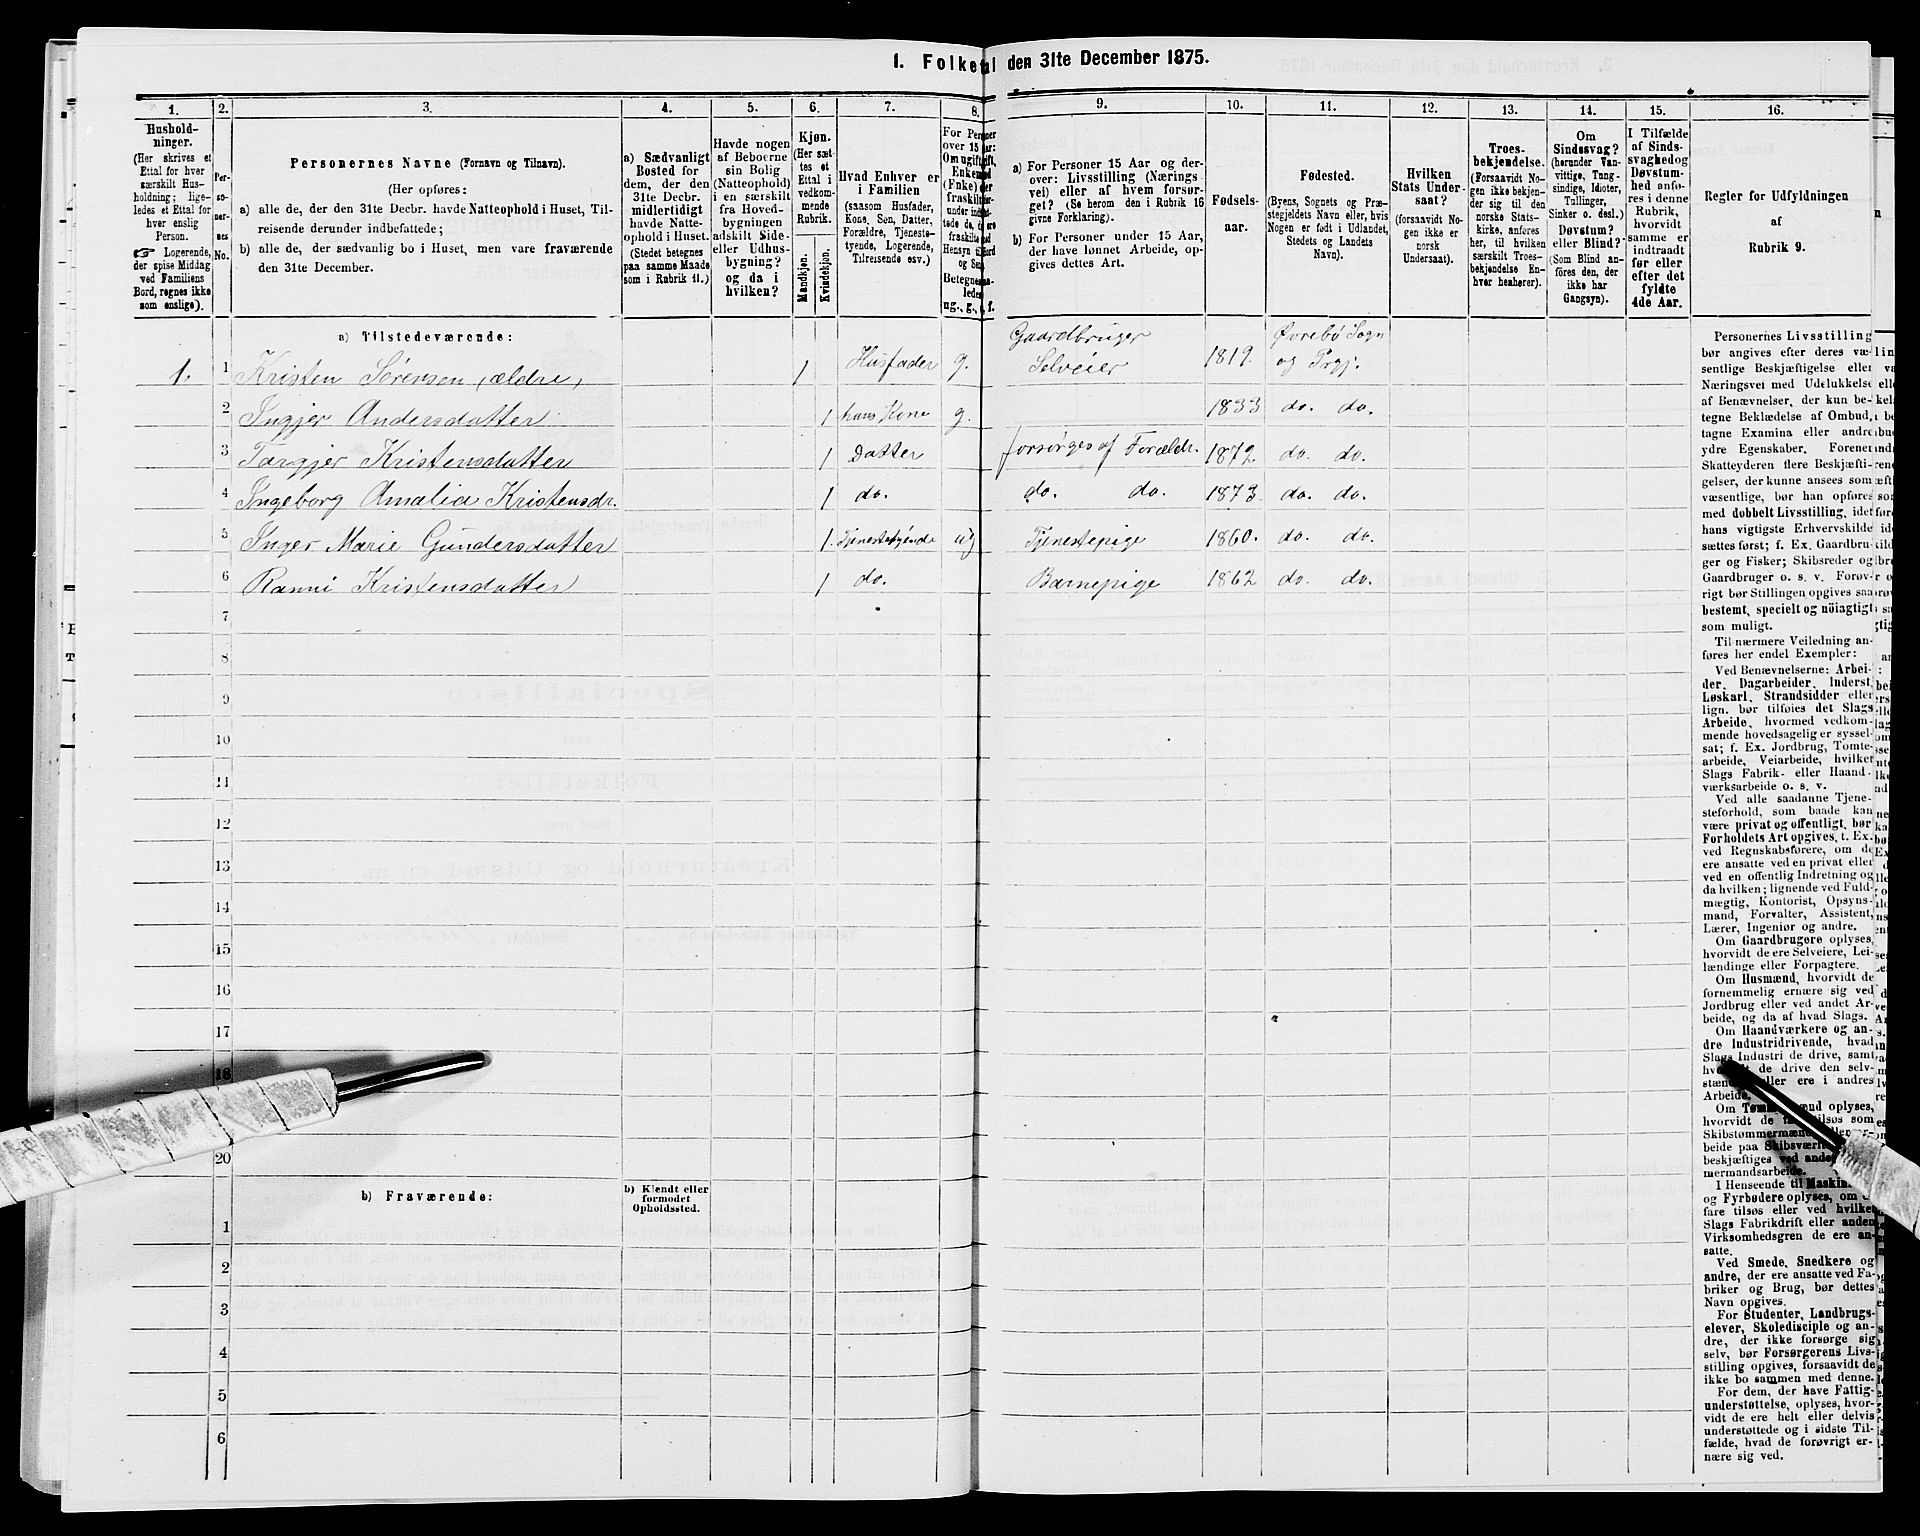 1. Folketal den 31te December 1875.
1. 2. 3. 4. 5. 6. 7. 8. 9. 10. 11. 12. 13. 14. 15. 16.
Hushold-
ninger.
(Her skrives et
Ettal for hver
særskilt Hus-
holdning; lige-
ledes et Ettal for
hver enslig
Person.
☞ Logerende,
der spise Middag
ved Familiens
Bord, regnes ikke
som enslige).
Per-
so-
ner-
nes
No.
Personernes Navne (Fornavn og Tilnavn).
(Her opføres:
a) alle de, der den 31te Decbr. havde Natteophold i Huset, Til-
reisende derunder indbefattede;
b) alle de, der sædvanlig bo i Huset, men vare fraværende
den 31te December.
a) Sædvanligt
Bosted for
dem, der den
31te Decbr.
midlertidigt
havde Natte-
ophold i Huset.
(Stedet betegnes
paa samme Maade
som i Rubrik 11.)
Havde nogen
af Beboerne
sin Bolig
(Natteophold)
i en særskilt
fra Hoved-
bygningen
adskilt Side-
eller Udhus-
bygning?
og da i
hvilken?
Kjøn.
(Her sæt-
tes et
Ettal i
vedkom-
mende
Rubrik.
Mandkjøn.
Kvindekjøn.
Hvad Enhver er
i Familien
(saasom Husfader,
Kone, Søn, Datter,
Forældre, Tjeneste-
tyende, Logerende,
Tilreisende osv.)
For Personer
over 15 Aar:
Om ugift, gift,
Enkemand
(Enke) eller
fraskilt
Betegnes
saaledes:
ug., g., e., f.
a) For Personer 15 Aar og der-
over: Livsstilling (Nærings-
vei) eller af hvem forsør-
get? (Se herom den i Rubrik 16
givne Forklaring).
b) For Personer under 15 Aar,
der have lønnet Arbeide, op-
gives dettes Art.
Fødsels-
aar.
Fødested.
(Byens, Sognets og Præ-
stegjeldets Navn eller, hvis
Nogen er født i Udlandet,
Stedets og Landets
Navn).
Hvilken
Stats Under-
saat?
(forsaavidt No-
gen ikke er
norsk
Undersaat).
Troes-
bekjendelse.
(Forsaavidt No-
gen ikke bekjen-
der sig til den
norske Stats-
kirke, anfø-
res her, til hvilken
særskilt Troes-
bekjendelse En-
hver henhører).
Om
Sindssvag?
(herunder Van-
vittige, Tung-
sindige, Idioter,
Tullinger,
Sinker o. desl.)
Døvstum?
eller Blind?
(Som Blind an-
føres den, der
ikke har
Gangsyn).
I Tilfælde
af Sinds-
svaghed og
Døvstum-
hed anfø-
res i denne
Rubrik,
hvorvidt
samme er
indtraadt
før eller
efter det
fyldte
4de Aar.
Regler for Udfyldningen
af
Rubrik 9.
a) Tilstedeværende:
1. 1 Kristen Sørensen, ældre, 1 Husfader g. Gaardbruger Selveier 1819. Øvrebø Sogn og Prgj.
2 Ingjer Andersdatter 1 hans Kone g. 1833 do. do.
3 Targjer Kristensdatter 1 Datter forsørges af Forældr. 1872 do. do.
4 Ingeborg Amalia Kristensdr. 1 do. do. do. 1873. do. do.
5 Inger Marie Gundersdatter 1. Tjenestetyende ug Tjenestepige 1860. do. do.
6 Ranni Kristensdatter 1 do. Barnepige 1862 do. do.
7
8
9
10
11
12
13
14
15
16
17
18
20
b) Fraværende:
b) Kjendt eller
formodet
Opholdssted.
1
2
3
4
5
6
Personernes Livsstilling
bør angives efter deres væ-
sentlige Beskjæftigelse eller
Næringsvei med Udelukkelse
af Benævnelser, der kun be-
tegne Beklædelse af Ombud,
tagne Examina eller andre
ydre Egenskaber. Forener
Skatteyderen flere Beskjæfti-
gelser, der kunne ansees som
væsentlige, bør han opføres
med dobbelt Livsstilling, idet
hans vigtigste Erhvervskilde
sættes først; f. Ex. Gaardbru-
ger og Fisker; Skibsreder og
Gaardbruger o. s. v. Forøv-
rigt bør Stillingen opgives saa
bestemt, specielt og nöiagtigt
som muligt.
Til nærmere Veiledning an-
føres her endel Exempler:
Ved Benævnelserne: Arbei-
der, Dagarbeider, Inderst,
Løskarl, Strandsidder eller
lign. bør tilføies det Slags
Arbeide, hvormed vedkom-
mende hovedsagelig er syssel-
sat; f. Ex. Jordbrug, Tomte-
arbeide, Veiarbeide, hvilket
Slags Fabrik- eller Haand-
værksarbeide o. s. v.
Ved alle saadanne Tjene-
steforhold, som baade kan
være privat og offentligt, bør
Forholdets Art opgives, t. Ex.
ved Regnskabsførere, om de
ere ansatte ved en privat eller
ved en offentlig Indretning og
da hvilken; lignende ved Fuld-
mægtig, Kontorist, Opsyns-
mand, Forvalter, Assistent,
Lærer, Ingeniør og andre.
Om Gaardbrugere oplyses,
hvorvidt de ere Selveiere, Lei-
lændinge eller Forpagtere.
Om Husmænd, hvorvidt de
fornemmelig ernære sig ved
Jordbrug eller ved andet Ar-
beide, og da af hvad Slags.
Om Haandværkere og an-
dre Industridrivende, hvad
Slags Industri de drive, samt
de drive den selv-
eller ere i andres
Arbeide.
Om oplyses,
hvorvidt de som
Skibstømmermænd
beide paa
beskjæftiges ved
mermandsarbeide.
I Henseende til
og Fyrbødere oplyses, om
fare tilsøs eller ved hvilket
Slags Fabrikdrift eller anden
Virksomhedsgren de ere an-
satte.
Ved Smede, Snedkere og
andre, der ere ansatte ved Fa-
briker og Brug, bør dettes
Navn opgives.
For Studenter, Landbrugs-
elever, Skoledisciple og an-
dre, der ikke forsørge sig
selv, bør Forsørgerens Livs-
stilling opgives, forsaavidt de
ikke bo sammen med denne.
For dem, der have Fattig-
understøttelse, oplyses, hvor-
vidt de ere helt eller delvis
understøttede og i sidste Til-
fælde, hvad de forøvrigt er-
nære sig ved.